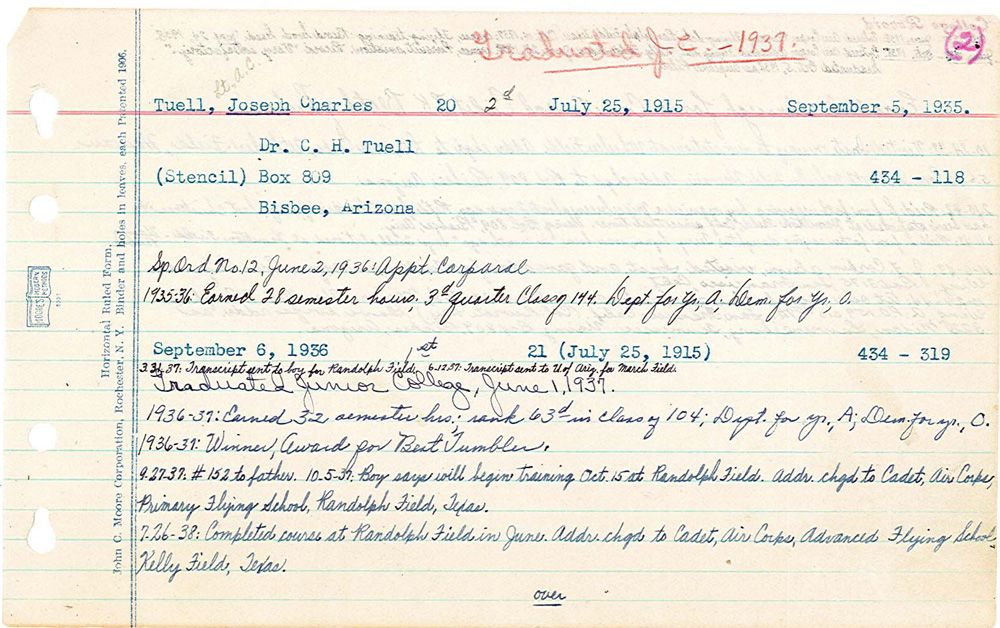 Graduated J.C.-1937.
(2)
Lt. A.C.
Tuell, Joseph Charles 20 2d July 25, 1915 September 5, 1935.
Dr. C. H. Tuell
(Stencil) Box 809 434 - 118
Bisbee, Arizona
Sp. Ord No. 12, June 2, 1936: Appt. Corporal
1935-36: Earned 28 semester hours; 3d quarter Class of 144. Dept. for yr, A; Dem. for yr, 0.
September 6, 1936 1st 21 (July 25, 1915) 434 - 319
3.31.37: Transcript sent to boy for Randolph Field. 6.12.37: Transcript sent to U of Ariz. for March Field.
Graduated Junior College, June 1, 1937.
1936-37: Earned 32 semester hrs; rank 63d in class of 104; Dept. for yr., A; Dem. for yr., 0.
1936-37: Winner, Award for Best Tumbler.
9-27-37: #152 to father. 10-5-37: Boy says will begin training Oct. 15 at Randolph Field. Addr. chgd to Cadet, Air Corps,
Primary Flying School, Randolph Field, Texas.
7-26-38: Completed course at Randolph Field in June. Addr. chgd to Cadet, Air Corps, Advanced Flying School
Kelly Field, Texas.
over
Horizontal Ruled Form.
John C. Moore Corporation, Rochester, N. Y. Binder and holes in leaves, each Patented 1906.
MOORE'S MODERN METHODS